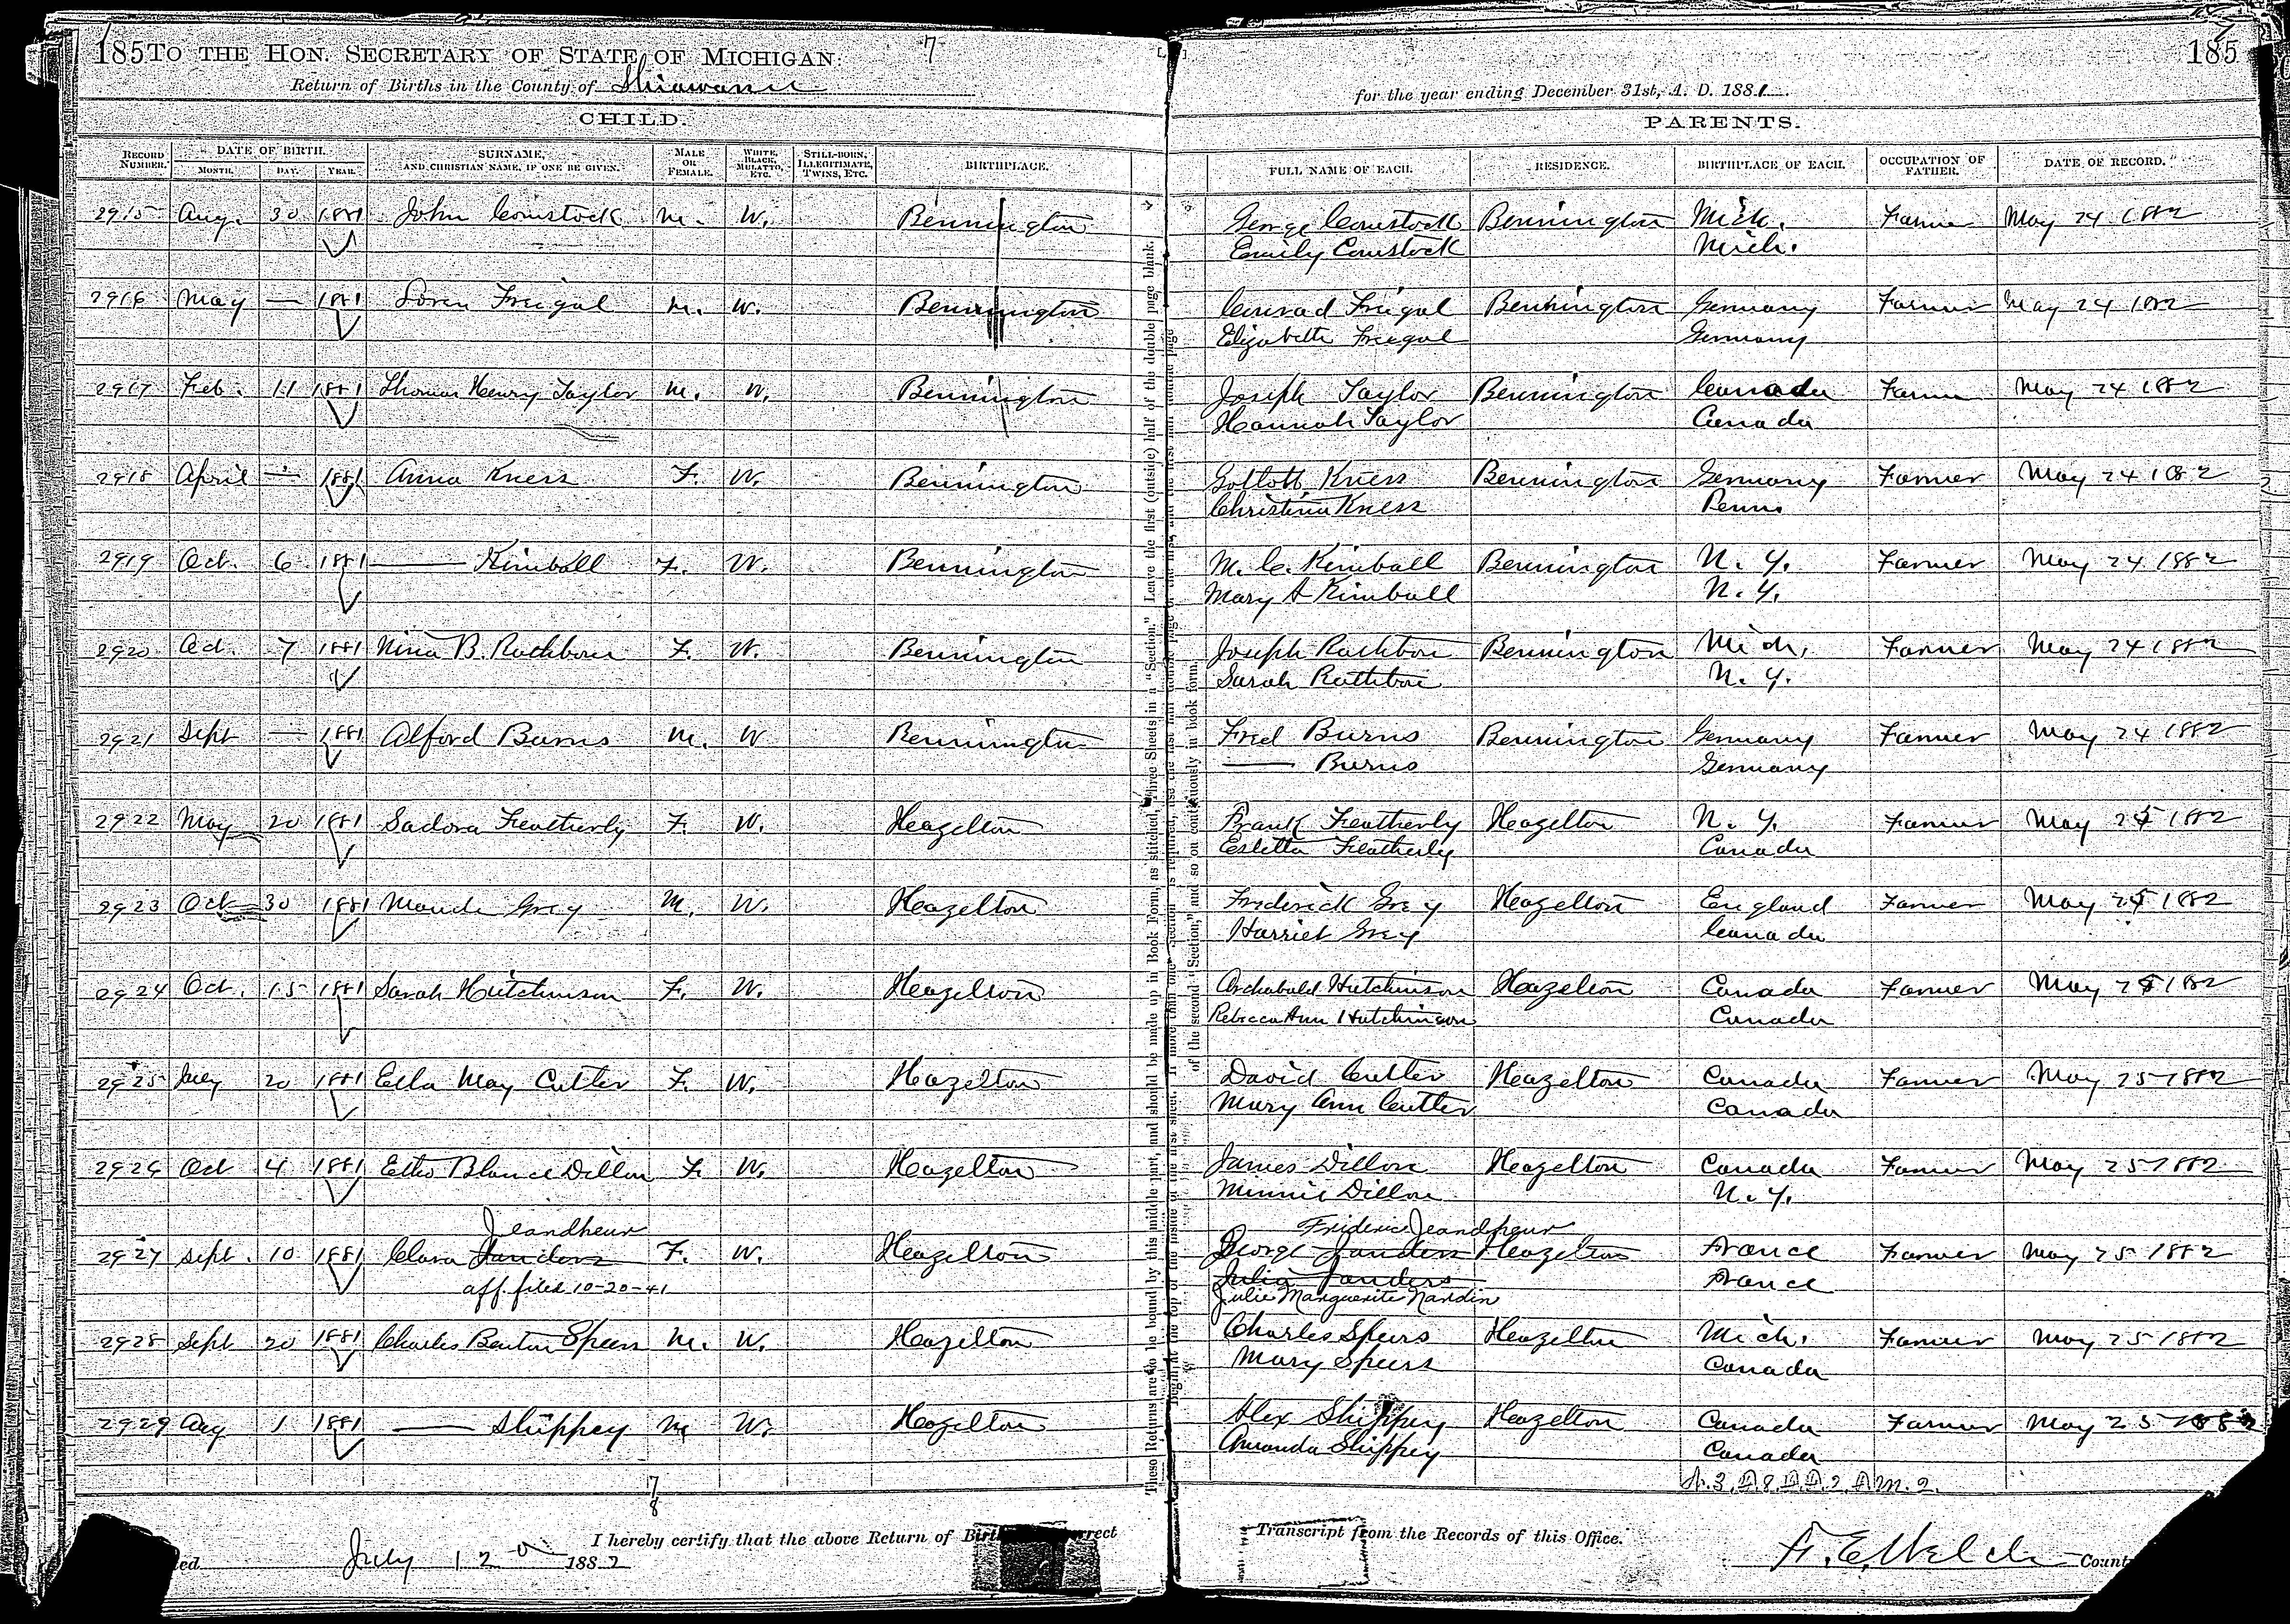 185 TO THE HON. SECRETARY OF STATE OF MICHIGAN: 7
Return of Births in the County of Shiawassee
CHILD.
RECORD NUMBER. DATE OF BIRTH. MONTH. DAY. YEAR. SURNAME, AND CHRISTIAN NAME, IF ONE BE GIVEN. MALE OR FEMALE. WHITE, BLACK, MULATTO, ETC. STILL-BORN, ILLEGITIMATE, TWINS, ETC. BIRTHPLACE.
2915 Aug. 30 1881 John Comstock M. W. Bennington
2916 May — 1881 Loren Freigal M. W. Bennington
2917 Feb. 11 1881 Thomas Henry Taylor M. W. Bennington
2918 April — 1881 Anna Kness F. W. Bennington
2919 Oct. 6 1881 —— Kimball F. W. Bennington
2920 Oct. 7 1881 Nina B. Rathbone F. W. Bennington
2921 Sept — 1881 Alford Burns M. W Bennington
2922 May 20 1881 Sadora Featherly F. W. Hazelton
2923 Oct 30 1881 Maude Grey M. W. Hazelton
2924 Oct. 15 1881 Sarah Hutchinson F. W. Hazelton
2925 July 20 1881 Ella May Cutler F. W. Hazelton
2926 Oct 4 1881 Blance Dillon F. W. Hazelton
Jeandheur
2927 Sept. 10 1881 Clara Janders F. W. Hazelton
aff. filed 10-20-41
2928 Sept 20 1881 Charles Benton Speers M. W. Hazelton
2929 Aug 1 1881 —— Shippey M W. Hazelton
7
8
I hereby certify that the above Return of
ed July 12 1882
These Returns are to be bound by this middle part, and should be made up in Book Form, as stitched, Three Sheets in a "Section." Leave the first (outside) half of the double page blank.
of the second "Section," and so on continuously in book form.
185
for the year ending December 31st, A. D. 1881.
PARENTS.
FULL NAME OF EACH. RESIDENCE. BIRTHPLACE OF EACH. OCCUPATION OF FATHER. DATE OF RECORD.
George Comstock Bennington Mich. Farmer May 24 1882
Emily Comstock Mich.
Conrad Freigal Bennington Germany Farmer May 24 1882
Elizabeth Freegal Germany
Joseph Taylor Bennington Canada Farmer May 24 1882
Hannah Taylor Canada
Gotlott Kness Bennington Germany Farmer May 24 1882
Christina Kness Penn
M. C. Kimball Bennington N. Y. Farmer May 24 1882
Mary A Kimball N. Y.
Joseph Rathbone Bennington Mich, Farmer May 24 1882
Sarah Rathbone N. Y.
Fred Burns Bennington Germany Farmer May 24 1882
—— Burns Germany
Frank Featherly Hazelton N. Y. Farmer May 25 1882
Esletta Featherly Canada
Frederick Grey Hazelton England Farmer May 25 1882
Harriet Grey Canada
Archabald Hutchinson Hazelton Canada Farmer May 25 1882
Rebecca Ann Hutchinson Canada
David Cutler Hazelton Canada Farmer May 25 1882
Mary Ann Cutler Canada
James Dillon Hazelton Canada Farmer May 25 1882
Minnie Dillon N. Y.
Frideric Jeandheur
George Janders Hazelton France Farmer May 25 1882
Julia Janders France
Julie Marguerite Nardin
Charles Speers Hazelton Mich. Farmer May 25 1882
Mary Speers Canada
Alex Shippey Hazelton Canada Farmer May 25 1882
Amanda Shippey Canada
Transcript from the Records of this Office.
Count